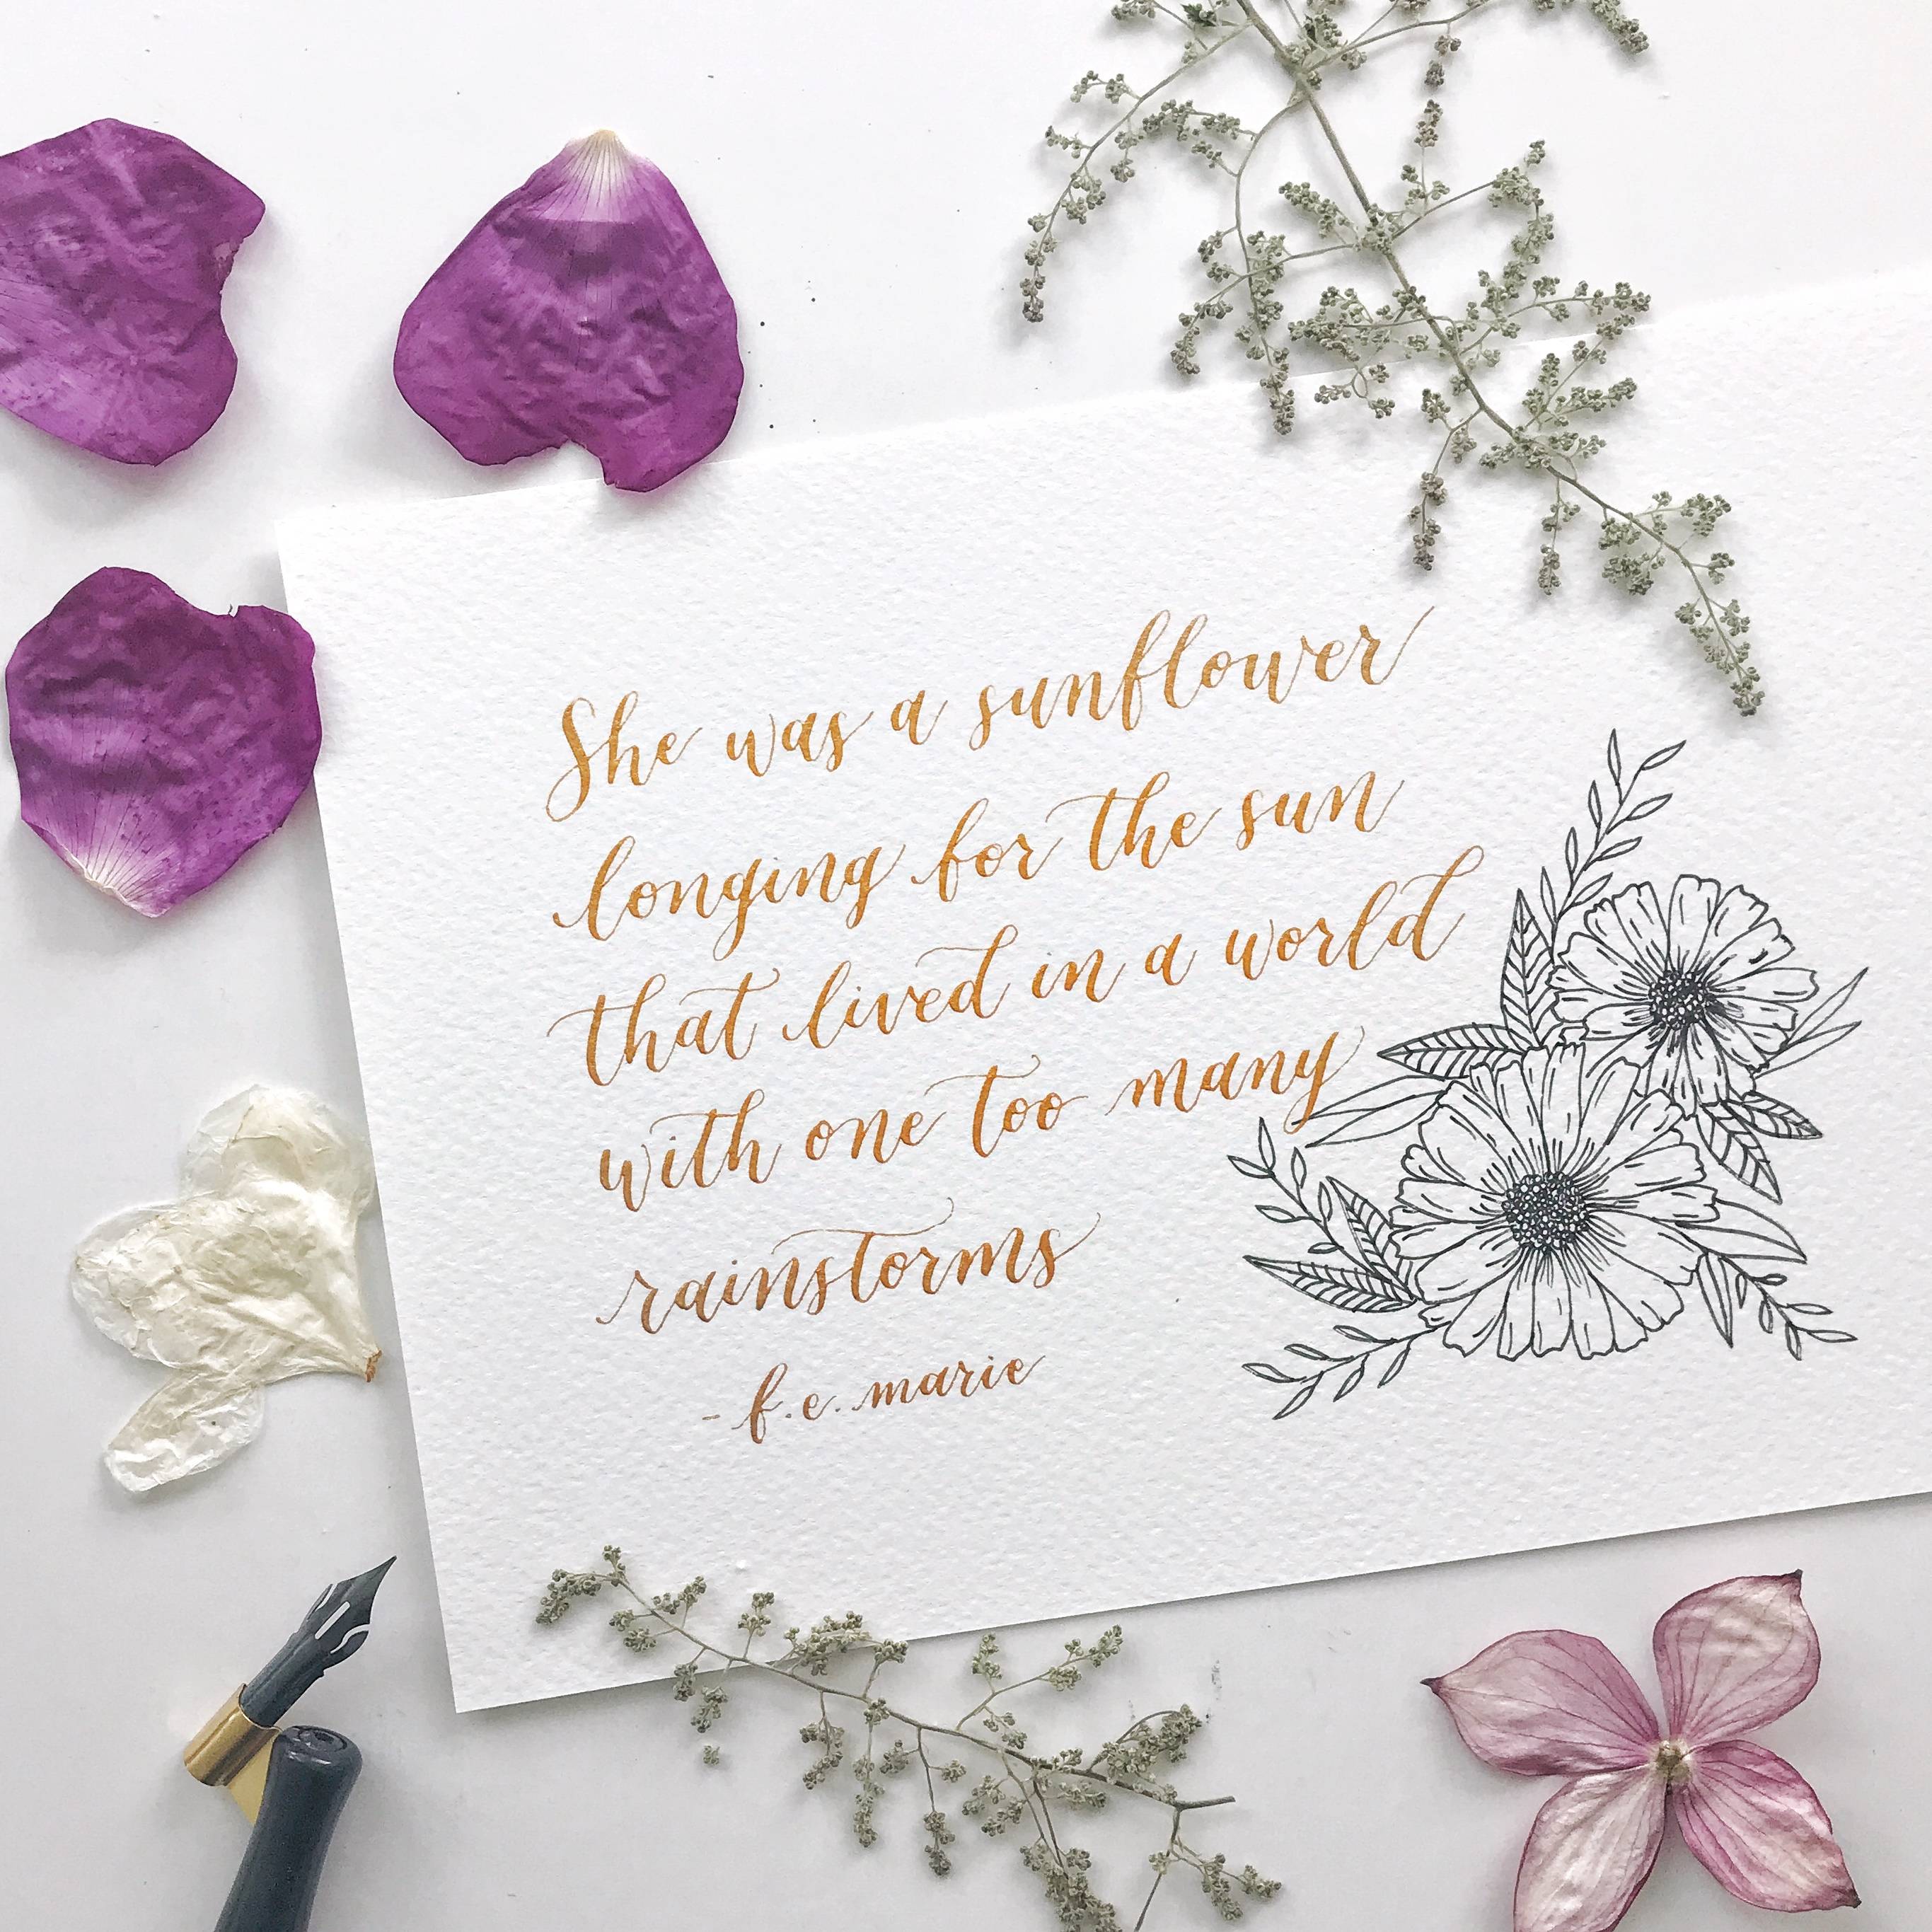 She was a sunflower
longing for the sun
that lived in a world
with one too many
rainstorms
- f.e. marie